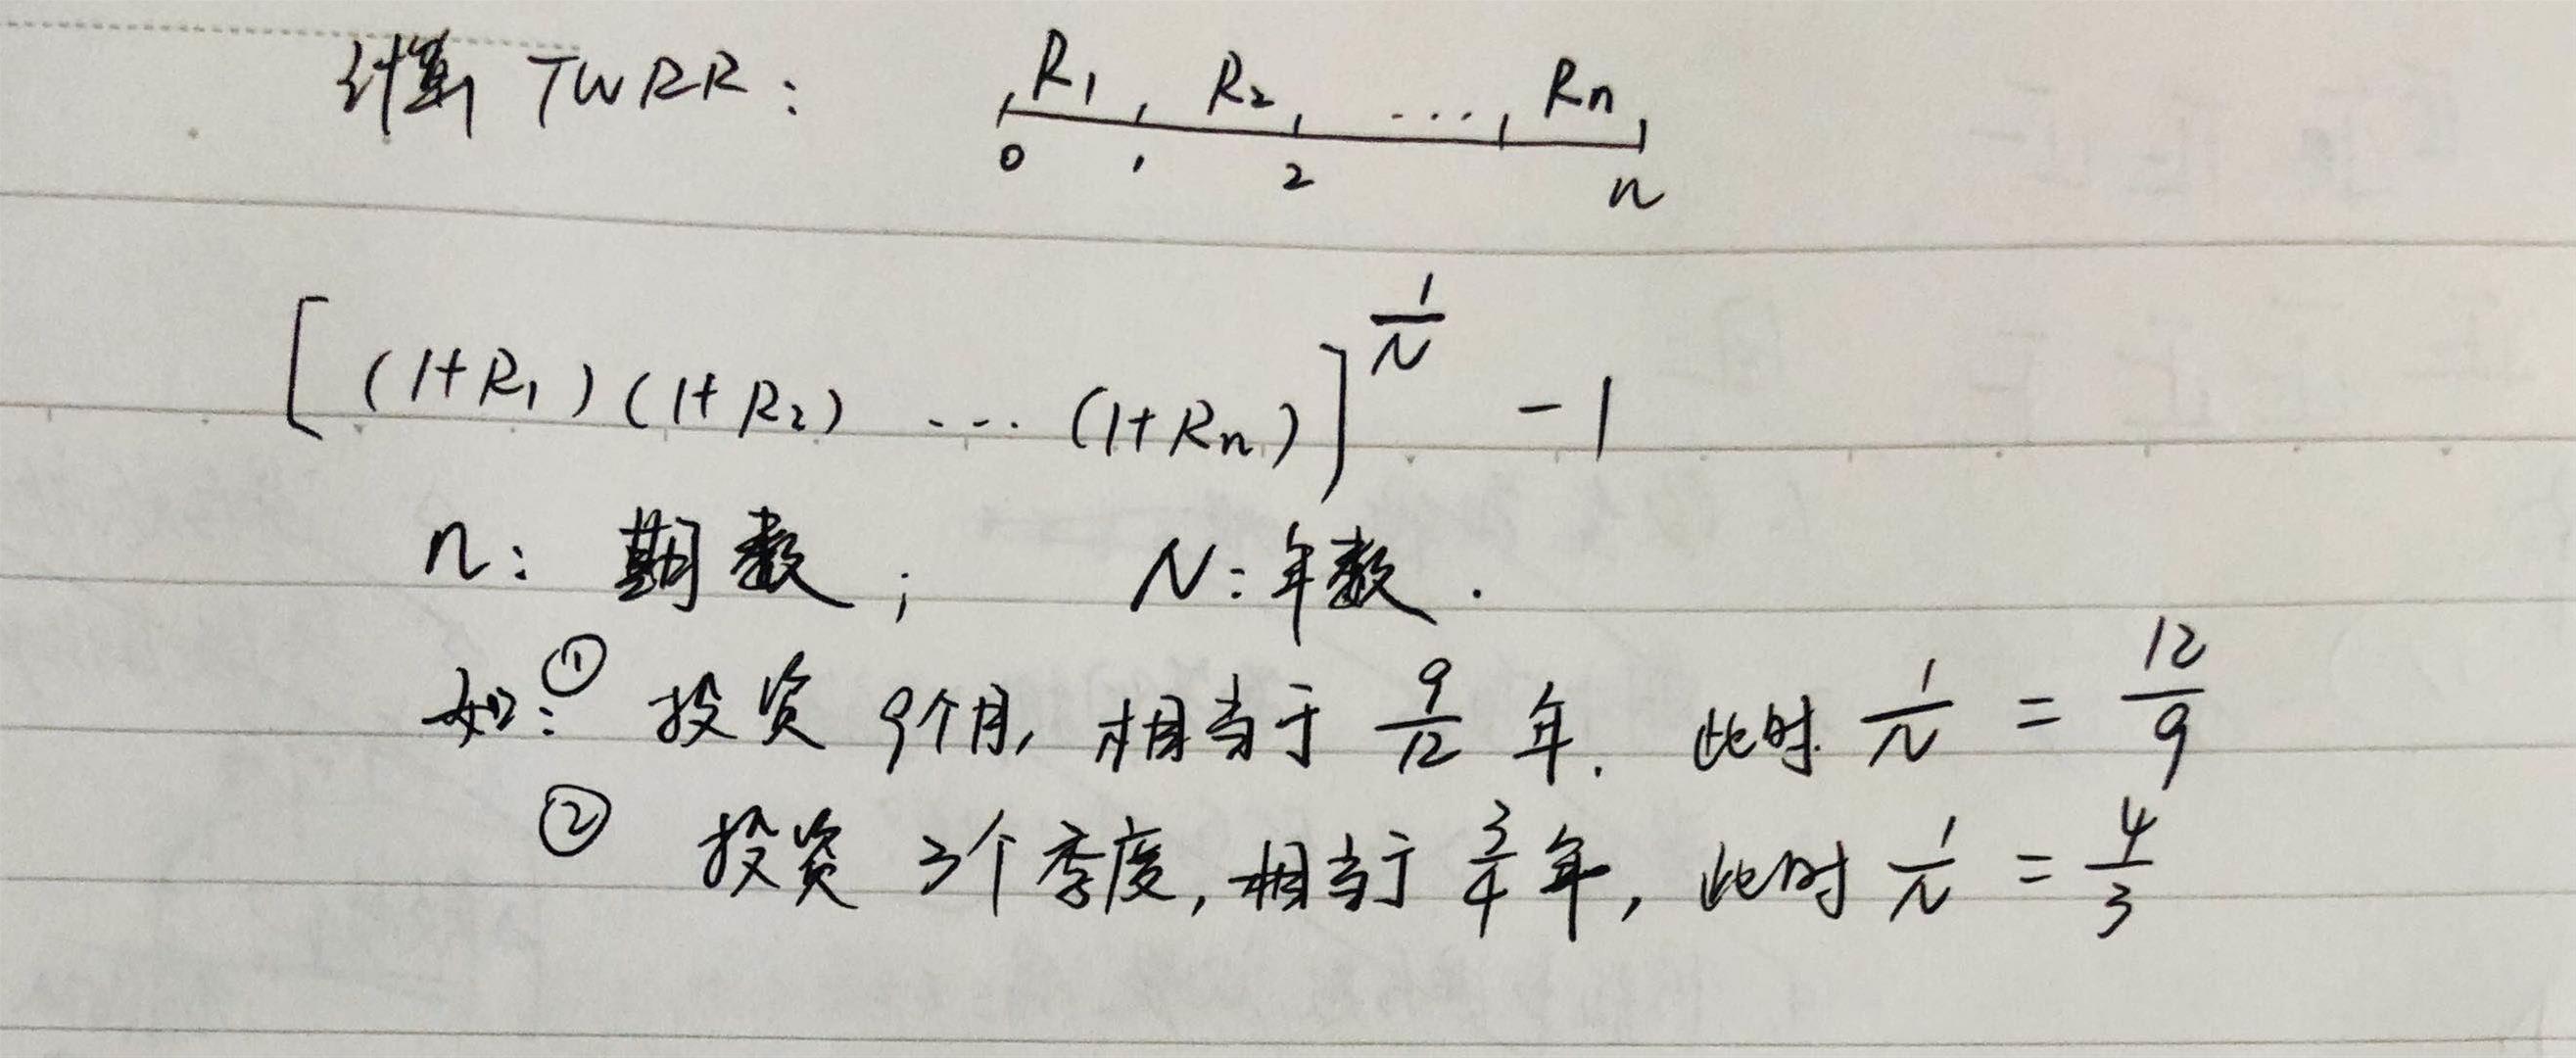 计算 TWRR: R₁, R₂, ..., Rn
0 1 2 n
[(1+R₁)(1+R₂) ... (1+Rn)]^(1/N) - 1
n: 期数; N: 年数.
如: ① 投资 9个月, 相当于 9/12 年. 此时 1/N = 12/9
② 投资 3个季度, 相当于 3/4 年, 此时 1/N = 4/3